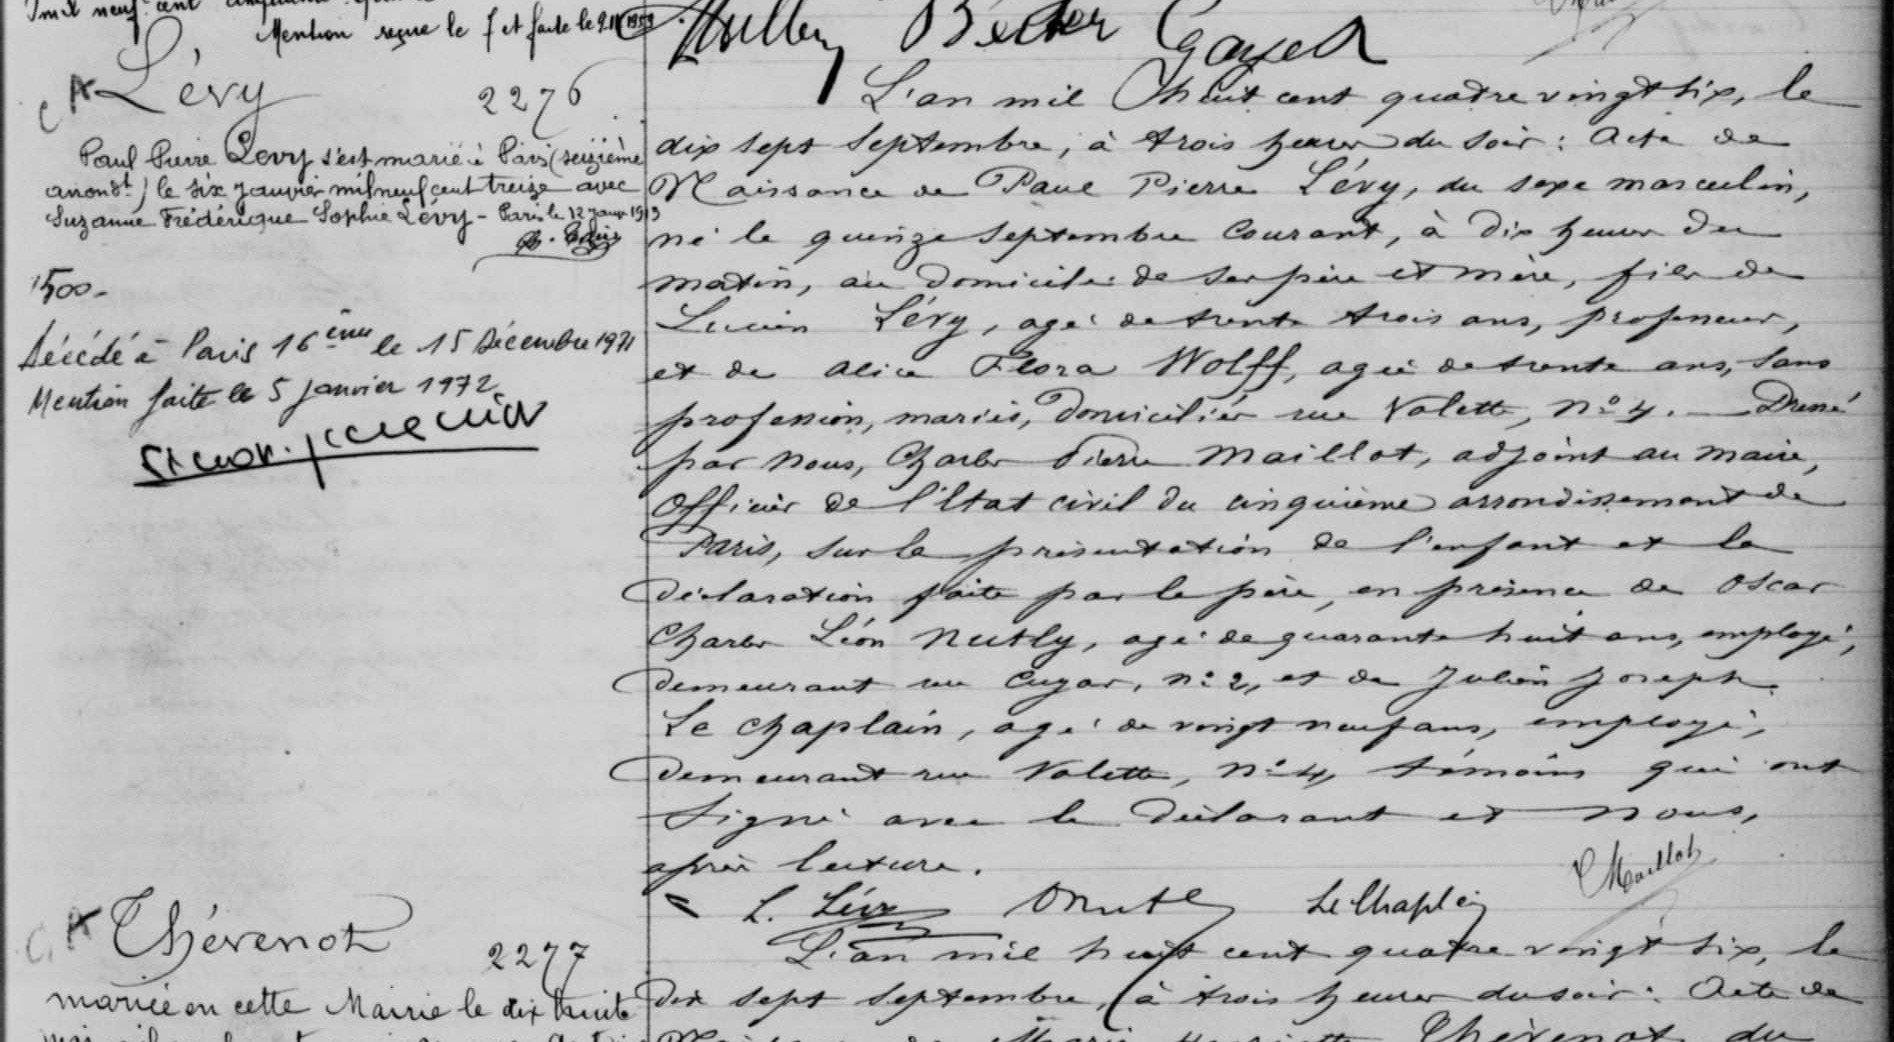 Mention reçue le 7 et faite le 9.11.1959
Lévy
2276
Paul Pierre Lévy s'est marié à Paris (seizième
arrondt) le six janvier mil neuf cent treize avec
Suzanne Frédérique Sophie Lévy - Paris le 12 janv 1913
1500-
Décédé à Paris 16ème le 15 Décembre 1971
Mention faite le 5 janvier 1972
L'an mil huit cent quatre vingt six, le
dix sept Septembre, à trois heures du soir : Acte de
Naissance de Paul Pierre Lévy, du sexe masculin,
né le quinze Septembre courant, à dix heures du
matin, au domicile de ses père et mère, fils de
Lucien Lévy, agé de trente trois ans, professeur,
et de Alice Flora Wolff, agée de trente ans, sans
profession, mariés, domiciliés rue Valette, no 4. — Dressé
par nous, Charles Pierre Maillot, adjoint au maire,
officier de l'Etat civil du cinquième arrondissement de
Paris, sur la présentation de l'enfant et la
déclaration faite par le père, en présence de Oscar
Charles Léon Nutly, agé de quarante huit ans, employé,
demeurant rue Cujas, no 2, et de Julien Joseph
Le Chaplain, agé de vingt neuf ans, employé,
demeurant rue Valette, no 4, témoins qui ont
signé avec le déclarant et nous,
après lecture.
Maillot
L. Lévy Le Chaplain
Thévenot
2277
mariée en cette Mairie le dix huit
L'an mil huit cent quatre vingt six, le
dix sept Septembre, à trois heures du soir : Acte de
Naissance de Marie Henriette Thévenot, du